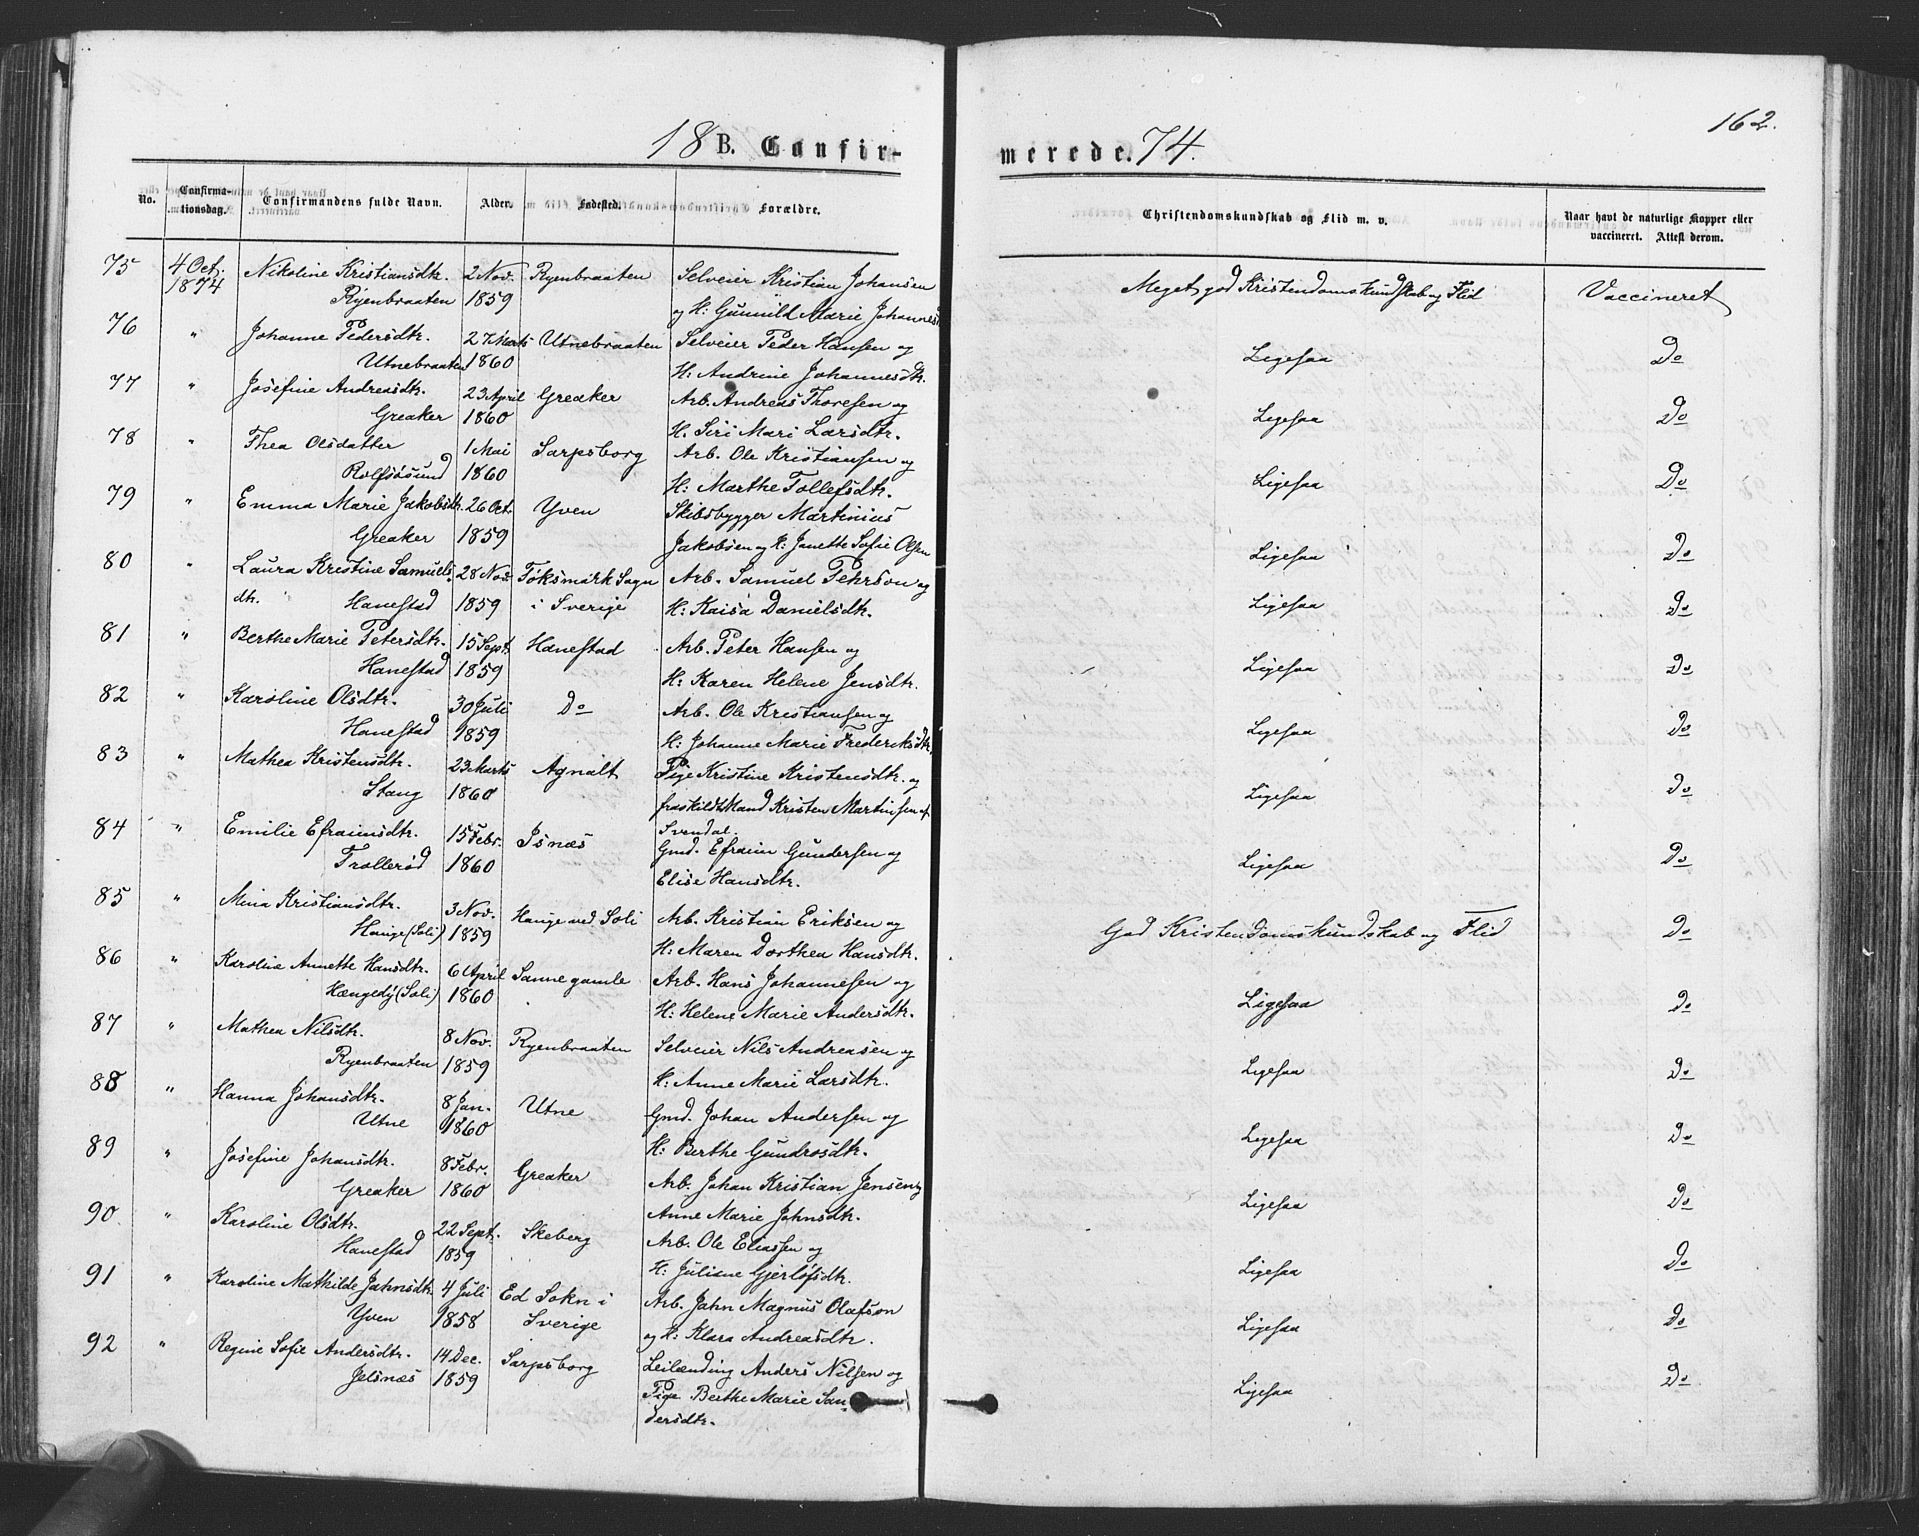 162.
18 B. Confir- merede. 74.
No. Confirma-tionsdag. Confirmandens fulde Navn. Alder. Fødested. Forældre. Christendomskundskab og Flid m. v. Naar havt de naturlige Kopper eller vaccineret. Attest derom.
75 4 Oct. Nikoline Kristiansdtr. 2 Nov. Ryenbraaten Selveier Kristian Johansen Meget god Kristendomskundskab og Flid Vaccineret
1874 Ryenbraaten 1859 og H: Gunnild Marie Johannesd
76 " Johanne Pedersdtr. 27 Marts Utnebraaten Selveier Peder Hansen og Ligesaa Do
Utnebraaten 1860 H: Andrine Johannesdtr.
77 " Josefine Andreasdtr. 23 April Greaker Arb. Andreas Thoresen og Ligesaa Do
Greaker 1860 H. Siri Mari Larsdtr.
78 " Thea Olsdatter 1 Mai Sarpsborg Arb. Ole Kristiansen og Ligesaa Do
Rolfsøsund 1860 H: Marthe Tollefsdtr.
79 " Emma Marie Jakobsdtr. 26 Oct. Yven Skibsbygger Martinius Ligesaa Do
Greaker 1859 Jakobsen og H: Janette Sofie Olsen
80 " Laura Kristine Samuels- 28 Nov. Foksmark Sogn Arb. Samuel Pehrson og Ligesaa Do
dtr. Hanestad 1859 i Sverige H: Kaisa Danielsdtr.
81 " Berthe Marie Petersdtr. 15 Sept. Hanestad Arb. Peter Hansen og Ligesaa Do
Hanestad 1859 H: Karen Helene Jensdtr.
82 " Karoline Olsdtr. 30 Juli Do Arb. Ole Kristiansen og Ligesaa Do
Hanestad 1859 H: Johanne Marie Frederiksdtr.
83 " Mathea Kristensdtr. 23 Marts Agnalt Pige Kristine Kristensdtr. og Ligesaa Do
Stang 1860 fraskildt Mand Kristen Martinsen af
Svendal.
84 " Emilie Efraimsdtr. 15 Febr. Isnæs Gmd. Efraim Gundersen og Ligesaa Do
Trollerød 1860 Elise Hansdtr.
85 " Mina Kristiansdtr. 3 Nov. Hauge ved Soli Arb. Kristian Eriksen og God Kristendomskundskab og Flid Do
Hauge (Soli) 1859 H: Maren Dorthea Hansdtr.
86 " Karoline Annette Hansdtr. 6 April Sanne gamle Arb. Hans Johannesen og Ligesaa Do
Hængedy (Soli) 1860 H: Helene Marie Andersdtr.
87 " Mathea Nilsdtr. 8 Nov. Ryenbraaten Selveier Nils Andreasen og Ligesaa Do
Ryenbraaten 1859 H: Anne Marie Larsdtr.
88 " Hanna Johansdtr. 8 Jan. Utne Gmd. Johan Andersen og Ligesaa Do
Utne 1860 H: Berthe Gundrosdtr.
89 " Josefine Johansdtr. 8 Febr. Greaker Arb. Johan Kristian Jensen og Ligesaa Do
Greaker 1860 Anne Marie Johnsdtr.
90 " Karoline Olsdtr. 22 Sept. Skeberg Arb. Ole Eliassen og Ligesaa Do
Hanestad 1859 H: Juliane Gjerløfsdtr.
91 " Karoline Mathilde Jahnsdtr. 4 Juli Ed Sokn i Arb. Jahn Magnus Olafson Ligesaa Do
Yven 1858 Sverige og H: Klara Andreasdtr.
92 " Regine Sofie Andersdtr. 14 Dec. Sarpsborg Leilænding Anders Nilsen og Ligesaa Do
Jelsnæs 1859 Pige Berthe Marie San-
dersdtr.